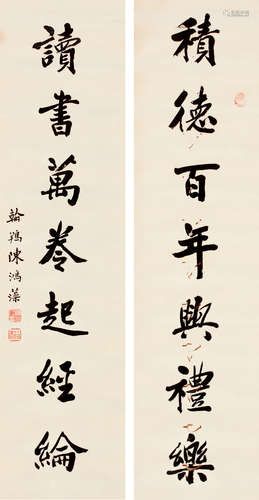 積德百年興禮樂
讀書萬卷起經綸
陳鴻藻